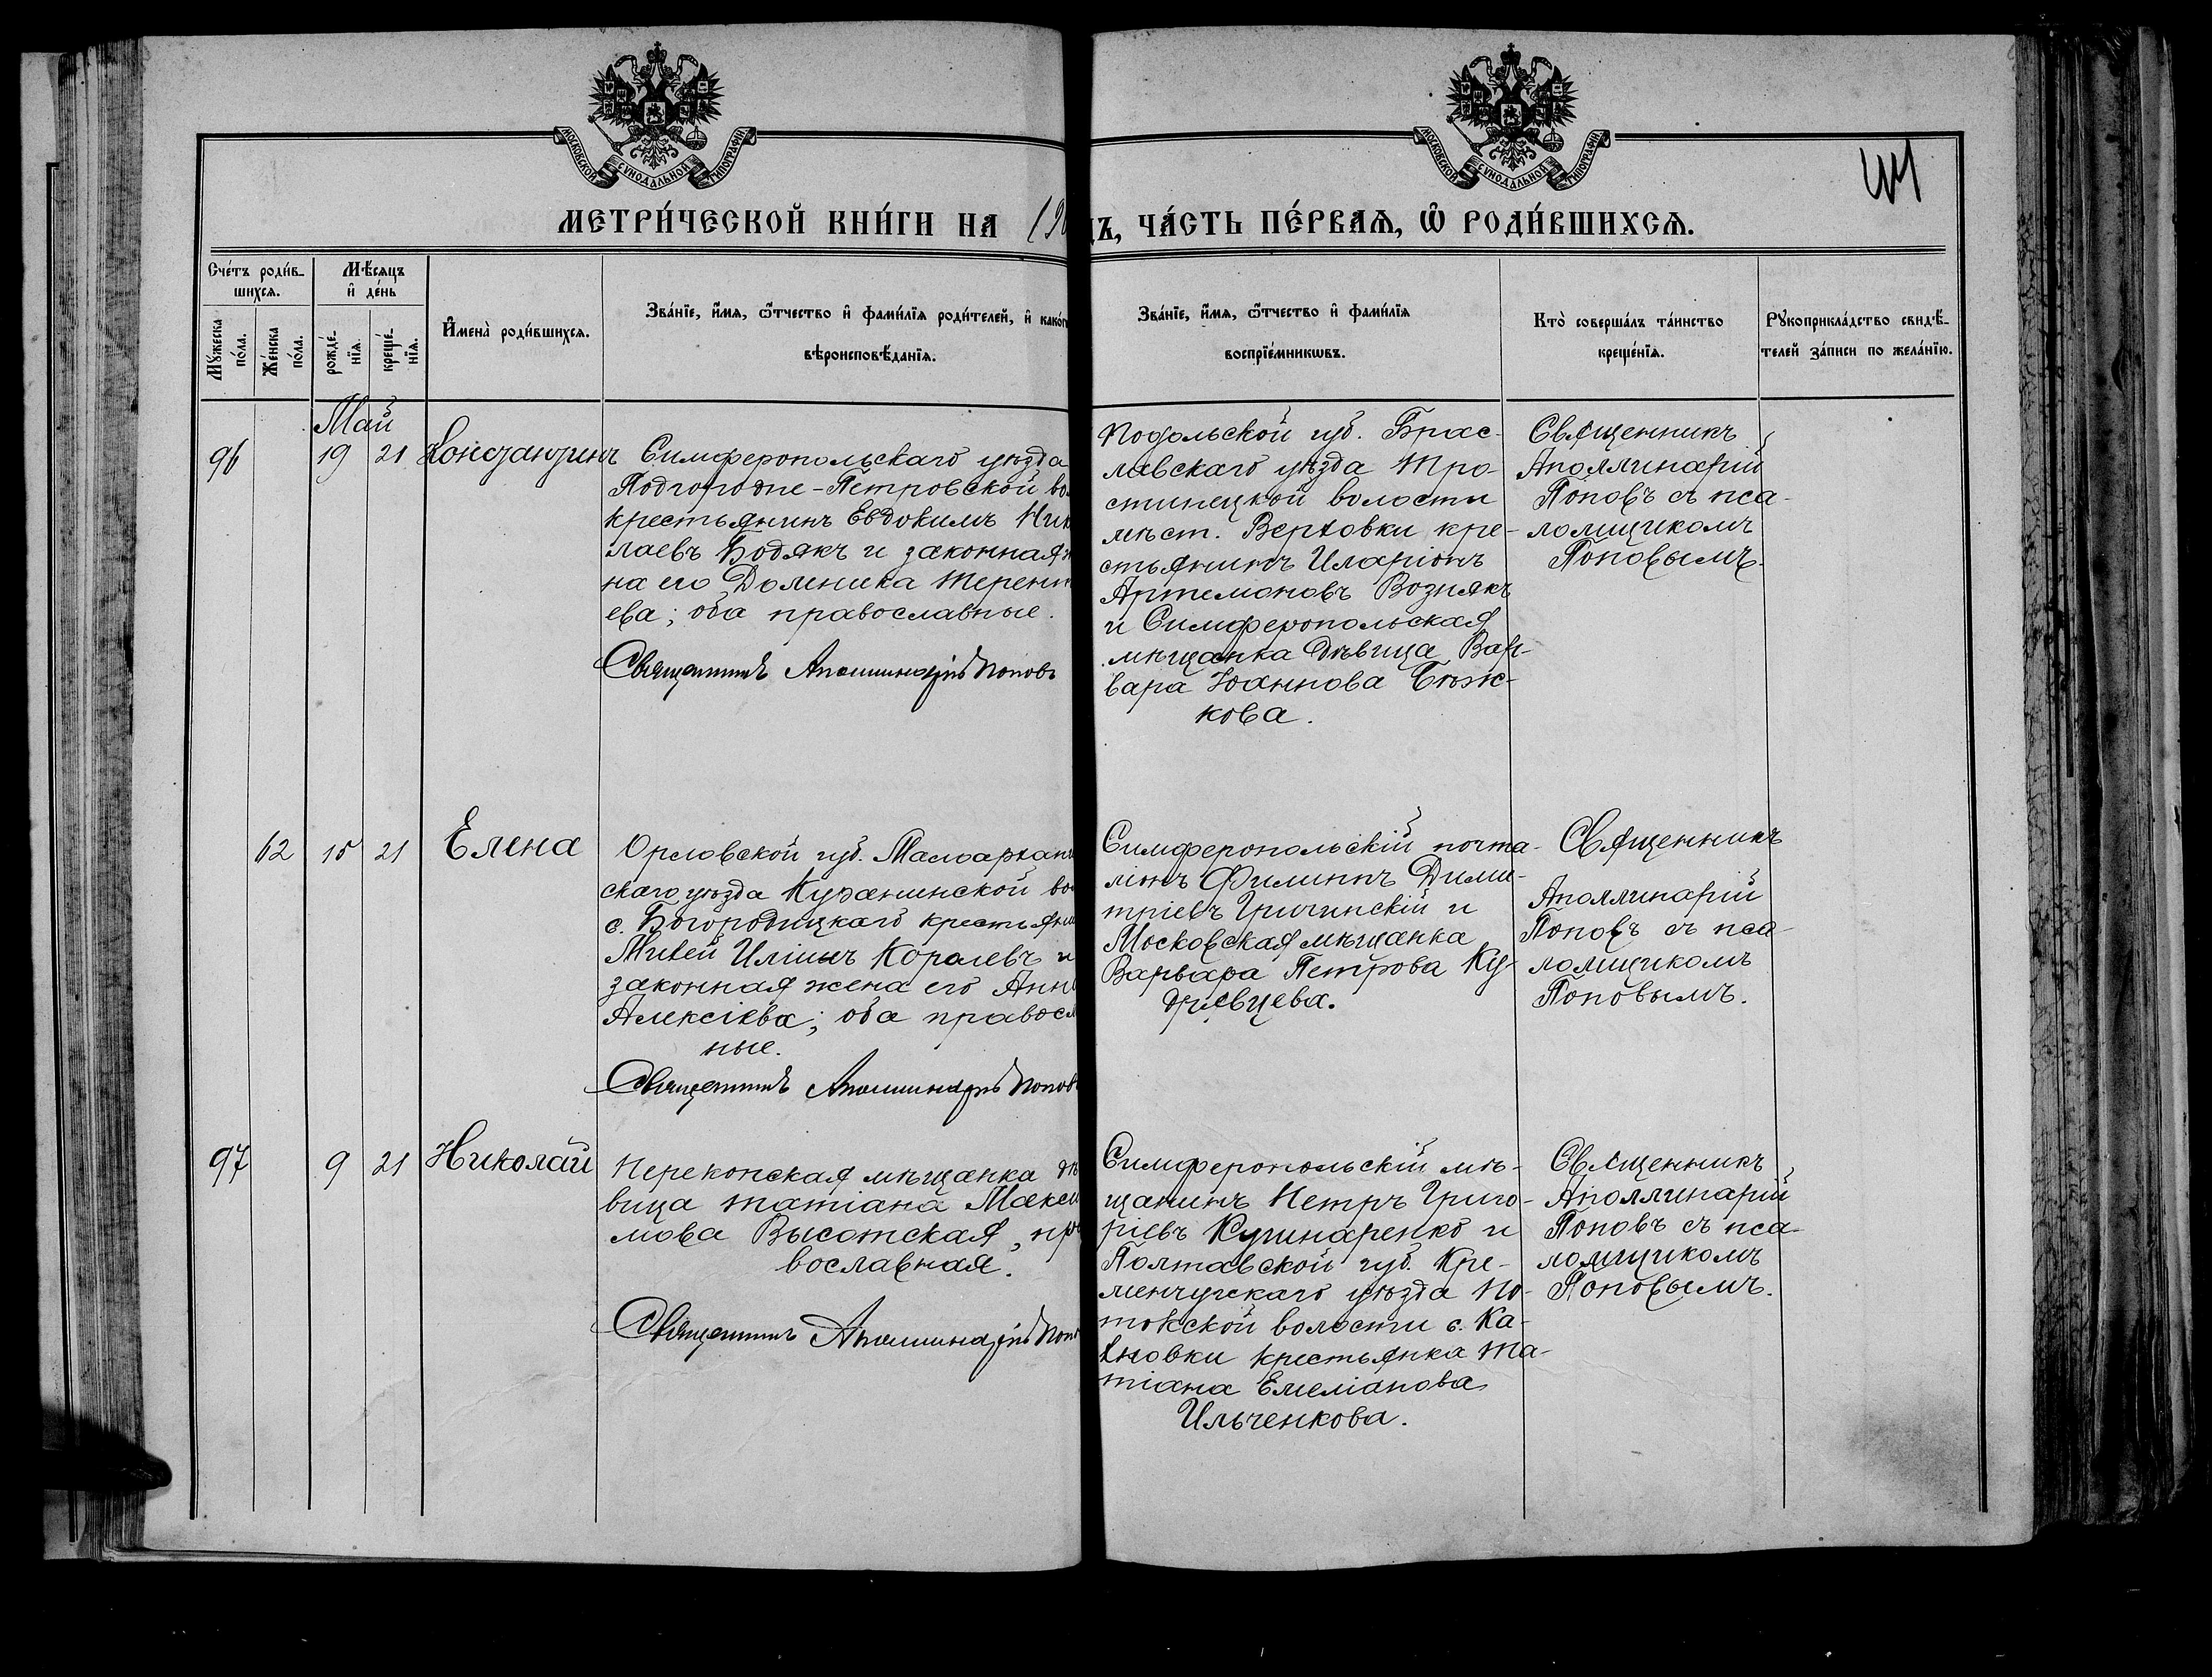 МОСКОВСКОЙ СѴНОДАЛЬНОЙ ТИПОГРАФІИ
МОСКОВСКОЙ СѴНОДАЛЬНОЙ ТИПОГРАФІИ
МЕТРИ́ЧЕСКОЙ КНИ́ГИ НА 190
ДЪ, ЧА́СТЬ ПЕ́РВАѦ, Ѽ РОДИ́ВШИХСѦ.
Сче́тъ роди́в-
шихсѧ.
Мѣ́сѧцъ
и҆ де́нь
Мꙋ́жеска
по́ла.
Же́нска
по́ла.
рожде́-
нїѧ.
креще́-
нїѧ.
И҆мена̀ роди́вшихсѧ.
Зва́нїе, и҆́мѧ, ѻ҆́тчество и҆ фами́лїѧ роди́телей, и҆ како́г
вѣроисповѣ́данїѧ.
Зва́нїе, и҆́мѧ, ѻ҆́тчество и҆ фами́лїѧ
воспрїе́мникѡвъ.
Кто̀ соверша́лъ та́инство
креще́нїѧ.
Рꙋкоприкла́дство свидѣ́-
телей за́писи по жела́нїю.
Май
96 19 21 Константинъ
Симферопольскаго уѣзда
Подгородне-Петровской во
крестьянинъ Евдокимъ Ник
лаевъ Бодякъ и законная ж
на его Доменика Терент
ева; оба православные.
Священникъ Аполлинарій Поповъ
Подольской губ. Брас-
лавскаго уѣзда Тро-
стинецкой волости
мѣст. Верховки кре-
стьянинъ Иларіонъ
Артемоновъ Вознякъ
и Симферопольская
мѣщанка дѣвица Вар-
вара Іоаннова Бѣж-
кова.
Священникъ
Аполлинарій
Поповъ съ пса-
ломщикомъ
Поповымъ.
62 15 21 Елена
Орловской губ. Малоархан
скаго уѣзда Куракинской во
с. Богородицкаго крестьяни
Михей Иліинъ Королевъ и
законная жена его Анн
Алексіева; оба правосл
ные.
Священникъ Аполлинарій Поповъ
Симферопольскій почта-
ліонъ Филиппъ Дими-
тріевъ Гричинскій и
Московская мѣщанка
Варвара Петрова Ку-
дрявцева.
Священникъ
Аполлинарій
Поповъ съ пса-
ломщикомъ
Поповымъ.
97 9 21 Николай
Перекопская мѣщанка дѣ
вица Татіана Макси
мова Высотская, пра
вославная.
Священникъ Аполлинарій Попо
Симферопольскій мѣ-
щанинъ Петръ Григо-
ріевъ Кушнаренко и
Полтавской губ. Кре-
менчугскаго уѣзда По-
токской волости с. Ка-
хновки крестьянка Та-
тіана Емеліанова
Ильченкова.
Священникъ
Аполлинарій
Поповъ съ пса-
ломщикомъ
Поповымъ.